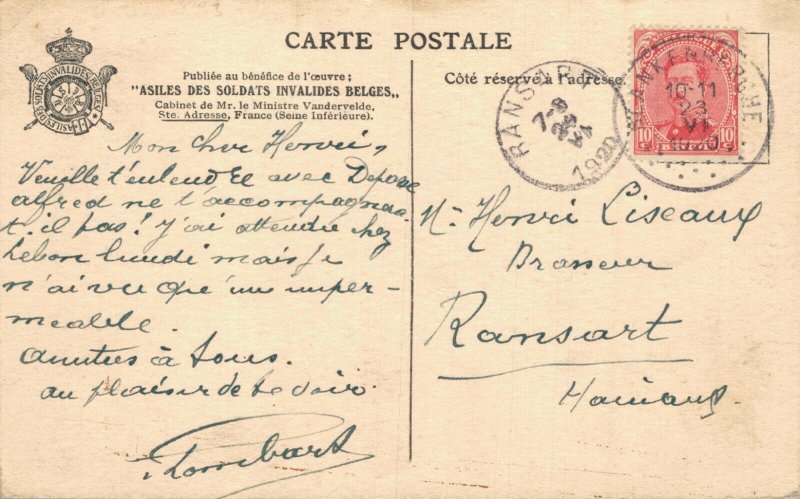 CARTE POSTALE
Publiée au bénéfice de l'œuvre :
"ASILES DES SOLDATS INVALIDES BELGES„
Cabinet de Mr. le Ministre Vandervelde,
Ste. Adresse, France (Seine Inférieure).
Côté réservé à l'adresse.
RANSART
7-8
1920
BLANKENBERGHE
10-11
23
VI
1920
10 10
Mon cher Henri,
Veuille t'entendre avec
alfred ne t'accompagnera-
t-il pas! J'ai attendu chez
Lebon lundi mais je
n'ai vu que un imper-
méable.
Amitiés à tous.
au plaisir de te voir.
Lombart
Mr Henri Liseaux
Brasseur
Ransart
Hainaut